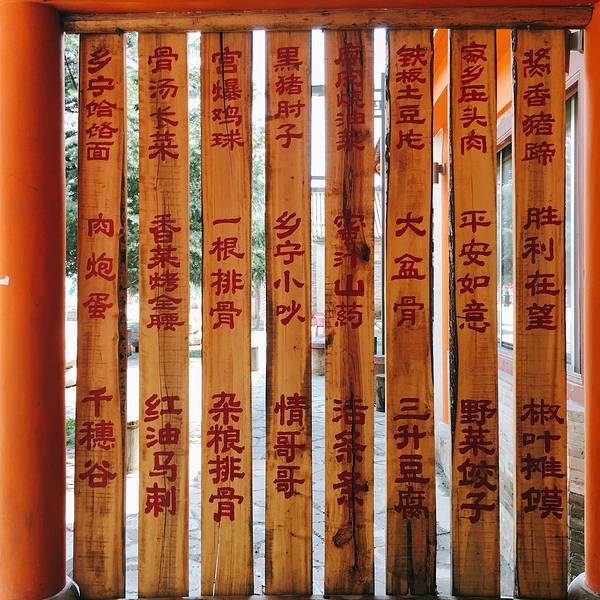 乡宁饸饹面
骨汤长菜
宫爆鸡球
黑猪肘子
油菜
铁板土豆片
家乡压头肉
酱香猪蹄
肉炮蛋
香菜烤金腰
一根排骨
乡宁小吵
蜜汁山药
大盆骨
平安如意
胜利在望
千穗谷
红油马刺
杂粮排骨
情哥哥
条条
三升豆腐
野菜饺子
椒叶摊馍